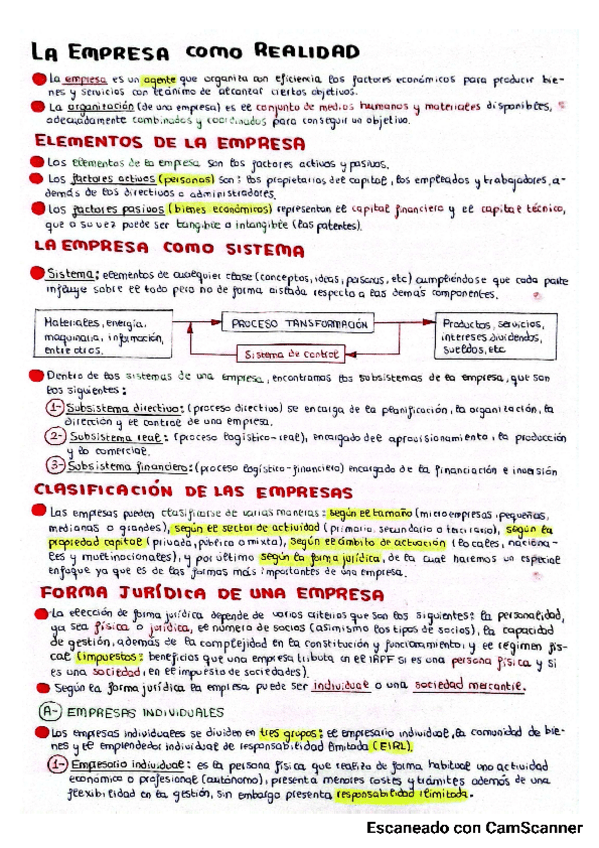 LA EMPRESA COMO REALIDAD
La empresa es un agente que organiza con eficiencia los factores económicos para producir bie-
nes y servicios con el ánimo de alcanzar ciertos objetivos.
La organización (de una empresa) es el conjunto de medios humanos y materiales disponibles,
adecuadamente combinados y coordinados para conseguir un objetivo.
ELEMENTOS DE LA EMPRESA
Los elementos de la empresa son los factores activos y pasivos.
Los factores activos (personas) son: los propietarios del capital, los empleados y trabajadores, a-
demás de los directivos o administradores.
Los factores pasivos (bienes económicos) representan el capital financiero y el capital técnico,
que a su vez puede ser tangible o intangible (las patentes).
LA EMPRESA COMO SISTEMA
Sistema: elementos de cualquier clase (conceptos, ideas, personas, etc) cumpliéndose que cada parte
influye sobre el todo pero no de forma aislada respecto a las demás componentes.
Materiales, energía,
maquinaria, información,
entre otros.
PROCESO TRANSFORMACIÓN
Sistema de control
Productos, servicios,
intereses dividendos,
sueldos, etc
Dentro de los sistemas de una empresa, encontramos los subsistemas de la empresa, que son
los siguientes:
1- Subsistema directivo: (proceso directivo) se encarga de la planificación, la organización, la
dirección y el control de una empresa.
2- Subsistema real: (proceso logístico-real), encargado del aprovisionamiento, la producción
y lo comercial.
3- Subsistema financiero: (proceso logístico-financiero) encargado de la financiación e inversión
CLASIFICACIÓN DE LAS EMPRESAS
Las empresas pueden clasificarse de varias maneras: según el tamaño (microempresas, pequeñas,
medianas o grandes), según el sector de actividad (primario, secundario o terciario), según la
propiedad capital (privada, pública o mixta), según el ámbito de actuación (locales, naciona-
les y multinacionales), y por último según la forma jurídica, de la cual haremos un especial
enfoque ya que es de las formas más importantes de una empresa.
FORMA JURÍDICA DE UNA EMPRESA
La elección de forma jurídica depende de varios criterios que son los siguientes: la personalidad,
ya sea física o jurídica, el número de socios (asimismo los tipos de socios), la capacidad
de gestión, además de la complejidad en la constitución y funcionamiento, y el régimen fis-
cal (impuestos: beneficios que una empresa tributa en el IRPF si es una persona física y si
es una sociedad, en el impuesto de sociedades).
Según la forma jurídica la empresa puede ser individual o una sociedad mercantil.
A- EMPRESAS INDIVIDUALES
Las empresas individuales se dividen en tres grupos: el empresario individual, la comunidad de bie-
nes y el emprendedor individual de responsabilidad limitada (EIRL).
1- Empresario individual: es la persona física que realiza de forma habitual una actividad
económica o profesional (autónomo), presenta menores costes y trámites además de una
flexibilidad en la gestión, sin embargo presenta responsabilidad ilimitada.
Escaneado con CamScanner